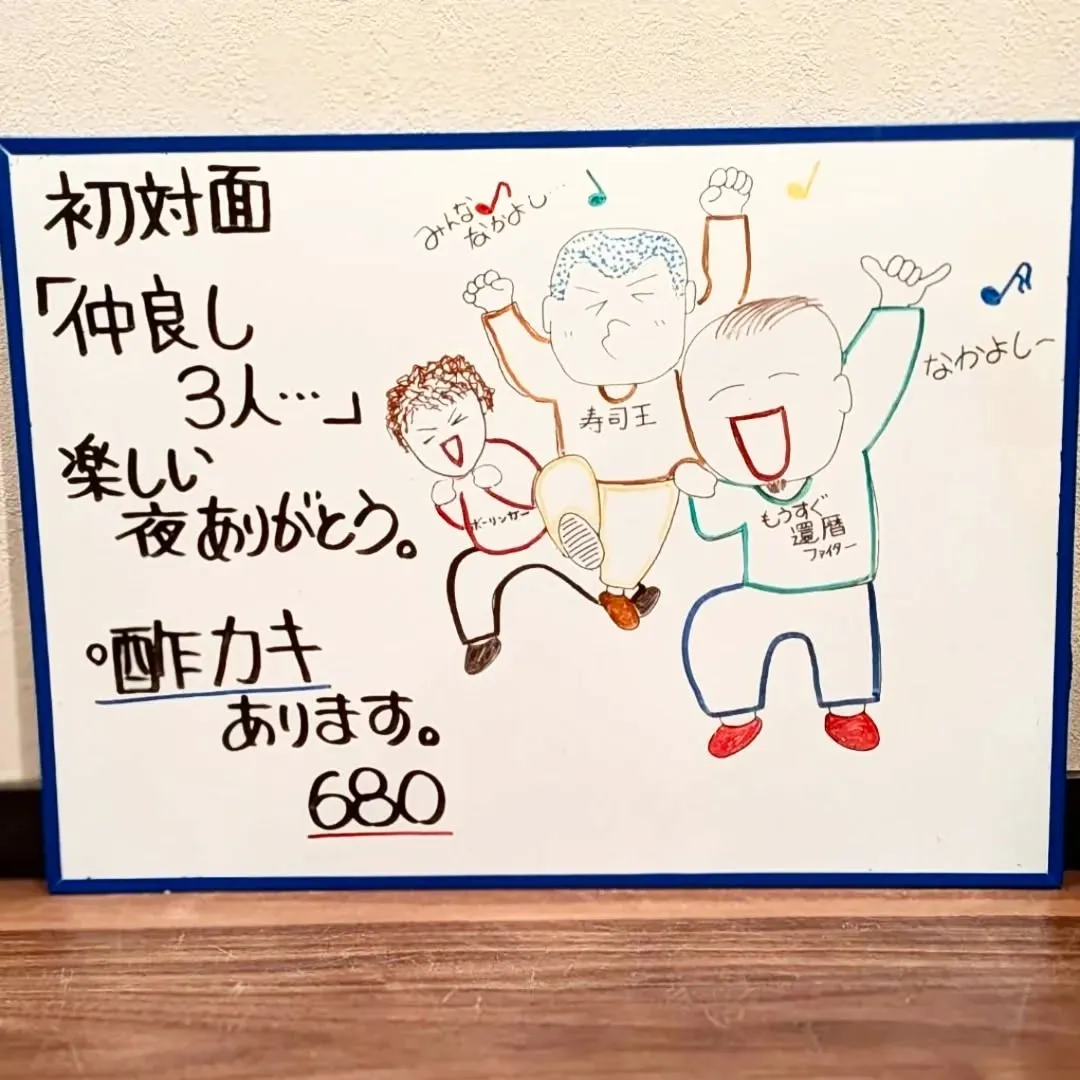 初対面
「仲良し
3人…」
楽しい
夜ありがとう。
。酢カキ
あります。
680
みんな
なかよし…
なかよしー
寿司王
ボーリンガー
もうすぐ
還暦
ファイター